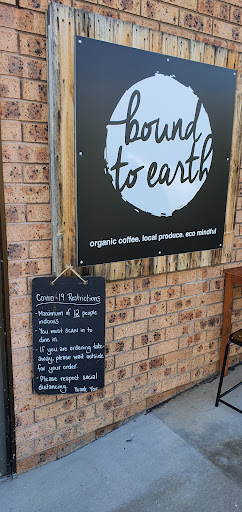 bound
to earth
organic coffee. local produce. eco mindful
Covid-19 Restrictions
- Maximum of 12 people
indoors
- You must scan in to
dine in.
- If you are ordering take
away, please wait outside
for your order.
- Please respect social
distancing. Thank You